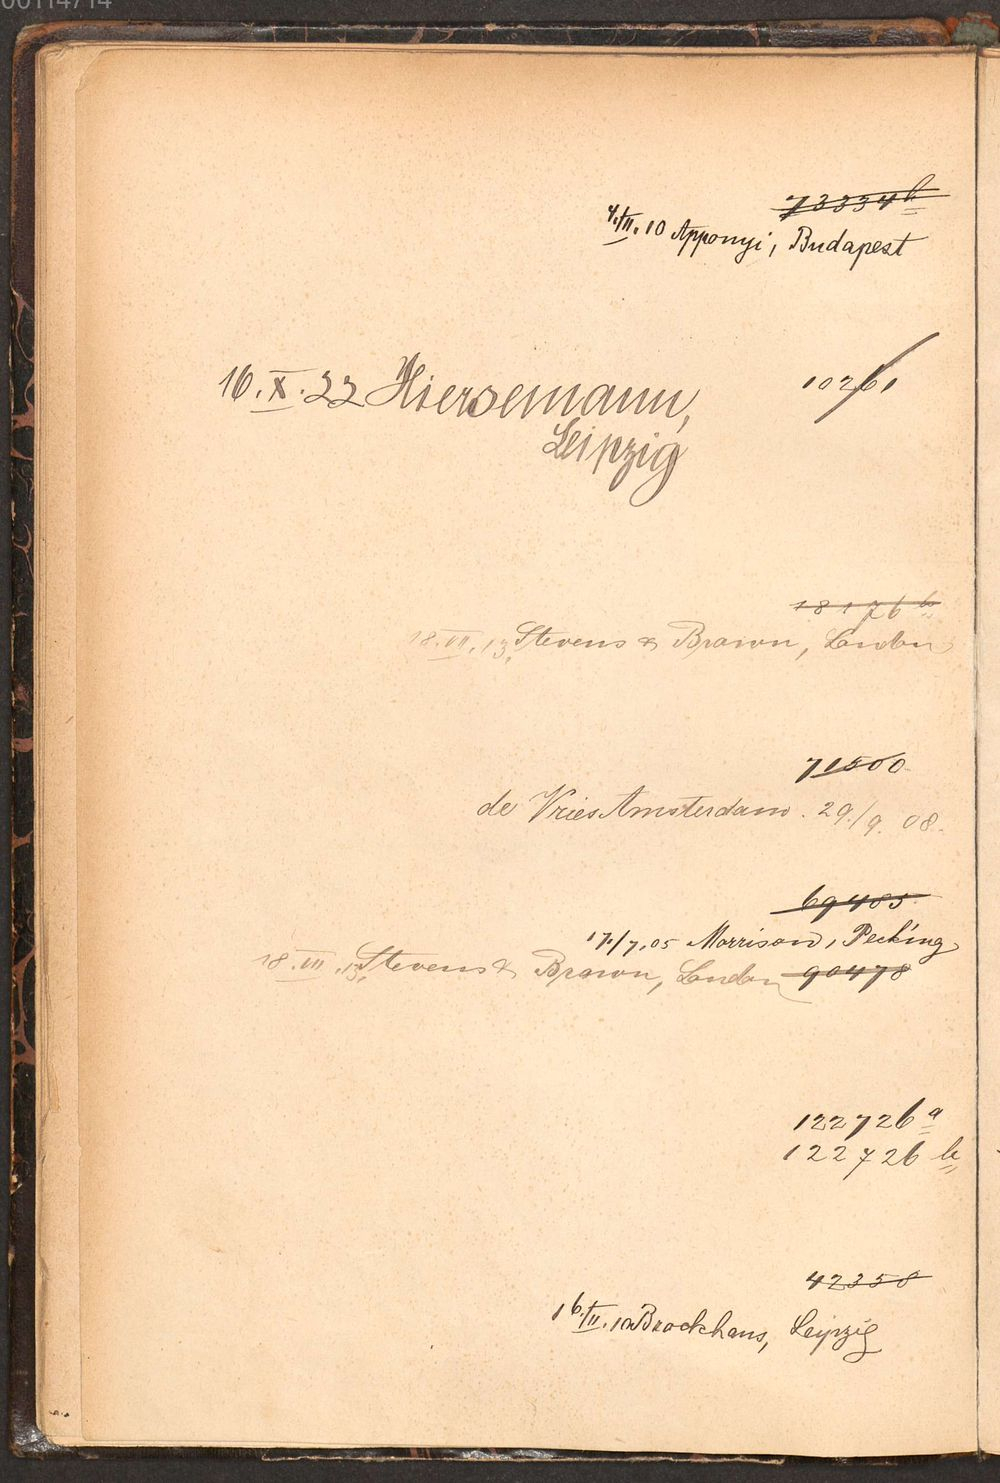 00114714
73334b
4.VII.10 Apponyi, Budapest
16.X.22 Hiersemann, 10261
Leipzig
18176b
18.VII.13. Stevens & Brown, London
71500
de Vries Amsterdam. 29./9. 08.
69485
17./7.05 Morrison, Pecking
18.VII.13. Stevens & Brown, London 90478
122726a
122726b
42358
16.VII.10 Brockhaus, Leipzig